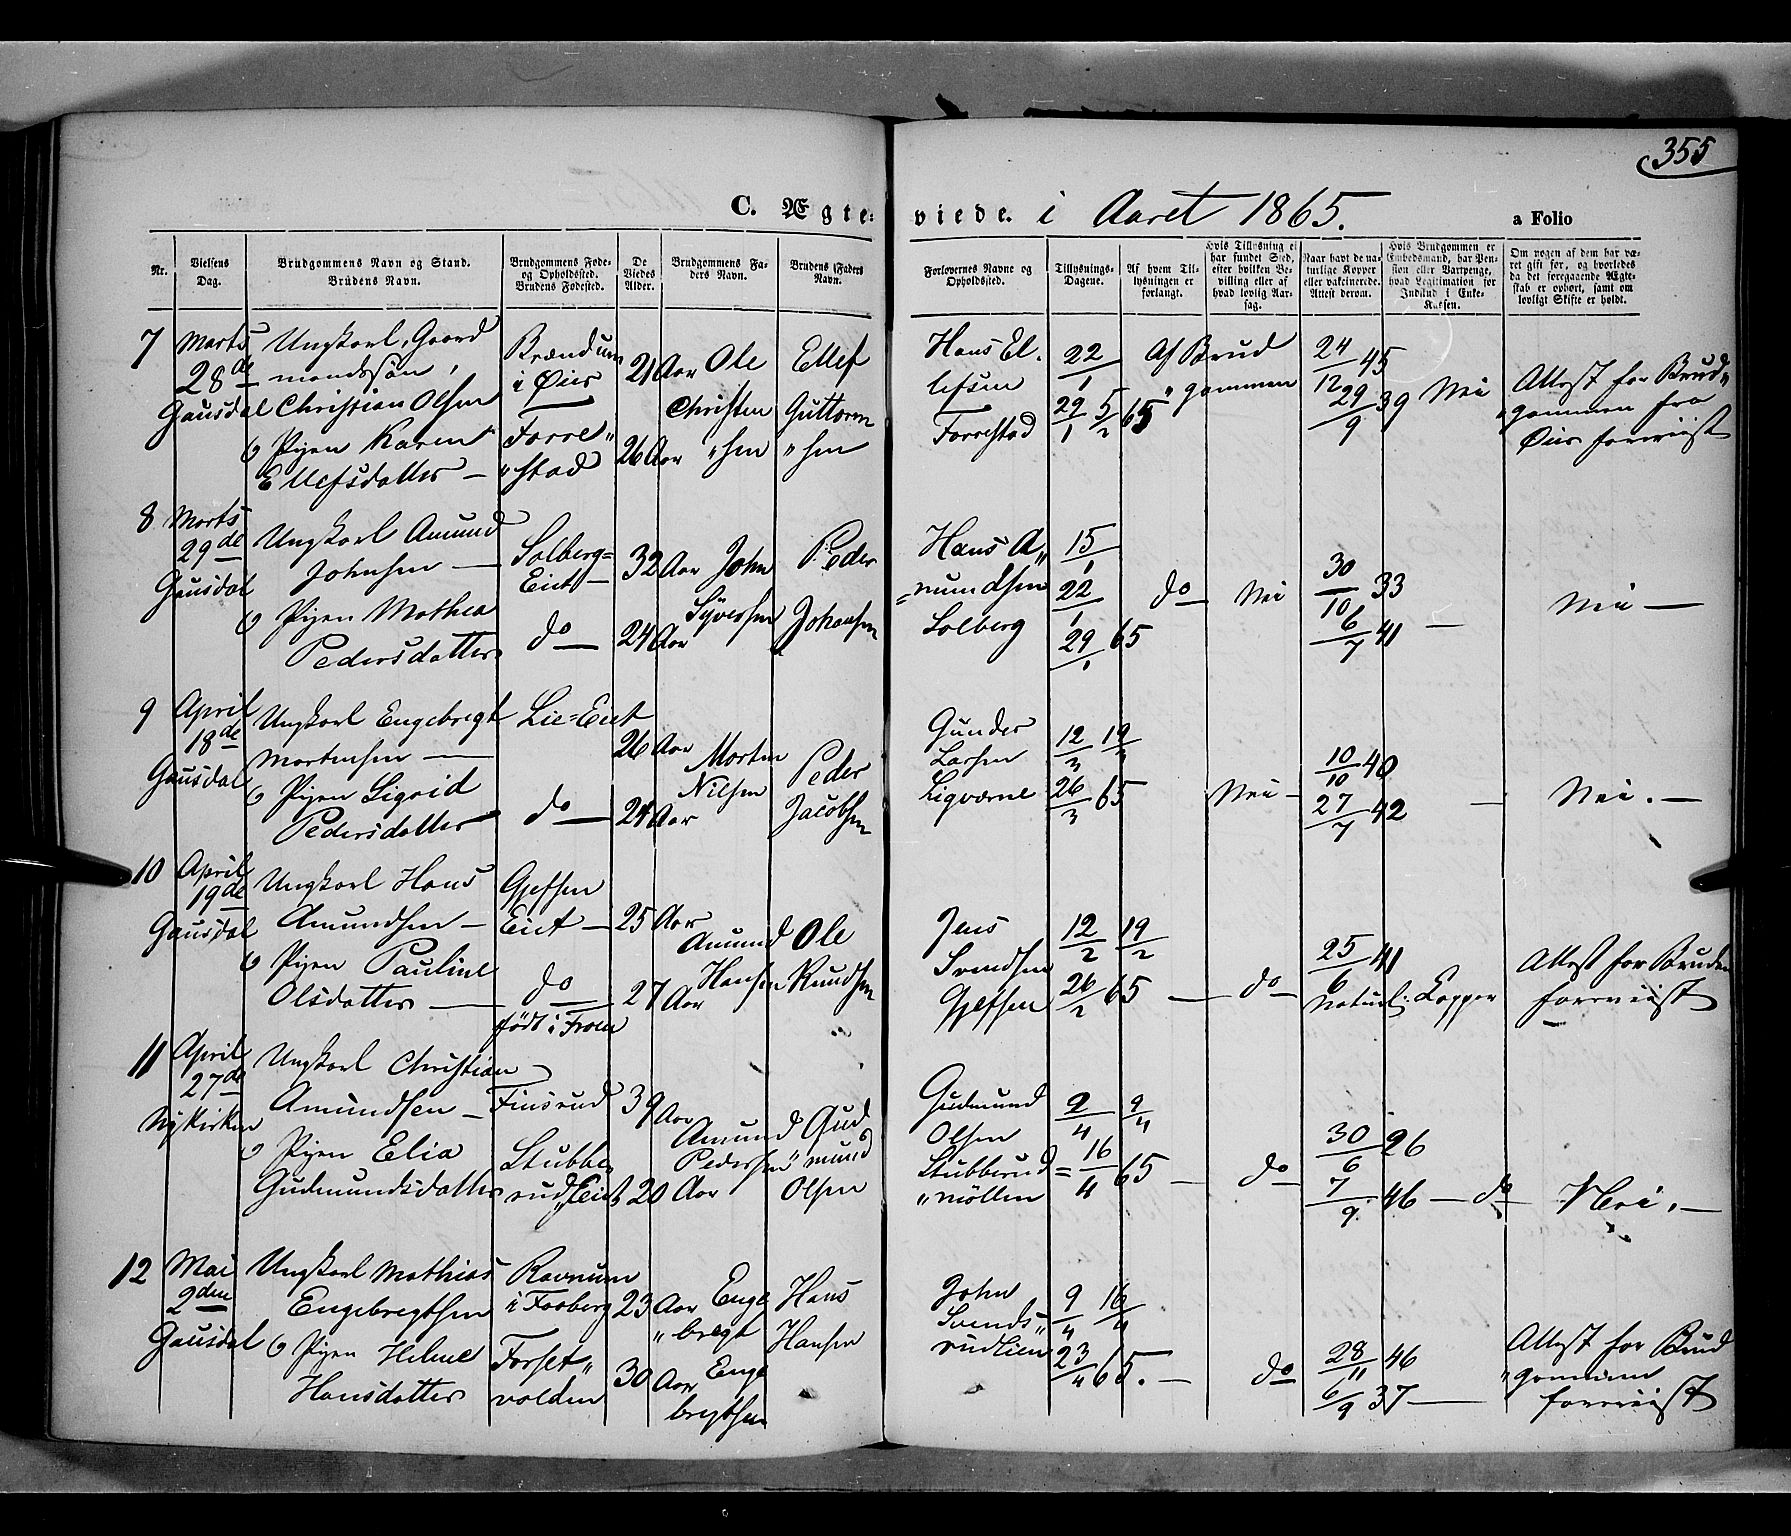 355
C. Ægte- viede. i Aaret 1865. a Folio
Nr.
Vielsens Dag.
Brudgommens Navn og Stand. Brudens Navn.
Brudgommens Føde- og Opholdssted. Brudens Fødested.
De Viedes Alder.
Brudgommens Faders Navn.
Brudens Faders Navn.
Forlovernes Navne og Opholdssted.
Tillysnings-Dagene.
Af hvem Tillysningen er forlangt.
Hvis Tillysning ei har fundet Sted, efter hvilken Bevilling eller af hvad lovlig Aarsag.
Naar havt de naturlige Kopper eller vakcinerede. Attest derom.
Hvis Brudgommen er Embedsmand, har Pension eller Vartpenge, hvad Legitimation for Indskud i Enke-Kassen.
Om nogen af dem har været gift før, og hvorledes da det foregaaende Ægteskab er ophørt, samt om lovligt Skifte er holdt.
7
Marts
28de
Gausdal
Ungkarl, Gaard
mandssøn,
Christian Olsen
o Pigen Karen
Ellefsdatter —
Brændum
i Øier
Forre"
"stad
21 Aar
26 Aar
Ole
Christen
"sen
Ellef
Guttorm
"sen
Hans El-
lefsen
Forrestad
22/1
29/1 5/2 65
Af Brud
"gommen
24/12 45
29/9 39
Nei
Attest for Brud"
"gommen fra
Øier foreviist
8
Marts
29de
Gausdal
Ungkarl Amund
Johnsen —
o Pigen Mathea
Pedersdatter
Solberg=
Eiet —
do —
32 Aar
24 Aar
John
Syversen
Peder
Johansen
Hans A"
=mundsen
Solberg
15/1
22/1
29/1 65
do —
Nei
30/10 33
6/7 41
—
Nei —
9
April
18de
Gausdal
Ungkarl Engebregt
Mortensen —
o Pigen Sigrid
Pedersdatter
Lie=Eiet
do —
26 Aar
24 Aar
Morten
Nilsen
Peder
Jacobsen
Gunder
Larsen
Ligværne
12/3 19/3
26/3 65
Nei —
10/10 40
27/7 42
—
Nei. —
10
April
19de
Gausdal
Ungkarl Hans
Amundsen —
o Pigen Pauline
Olsdatter —
Gjefsen
Eiet —
do
født i Fron
25 Aar
27 Aar
Amund
Hansen
Ole
Knudsen
Jens
Svendsen
Gjefsen
12/2 19/2
26/2 65
—
do —
25/6 41
Naturl. Kopper
Attest for Bruden
foreviist
11
April
27de
Nykirken
Ungkarl Christian
Amundsen —
o Pigen Elia
Gudmundsdatter
Finsrud
Stubbe"
rud,Eiet
39 Aar
20 Aar
Amund
Pedersen
Gud
"mund
Olsen
Gudmund
Olsen
Stubberud=
"møllen
2/4 9/4
16/4 65
—
do —
30/6 26
7/9 46
— do
Nei. —
12
Mai
2den
Gausdal
Ungkarl Mathias
Engebregtsen
o Pigen Helene
Hansdatter
Ravnum
i Faaberg
Forset"
volden
23 Aar
30 Aar
Enge
"bregt
Enge
bregtsen
Hans
Hansen
John
Svends"
rudlien
9/4 16/4
23/4 65. —
do
28/11 46
6/9 37 —
Attest for Brud
"gommen
foreviist